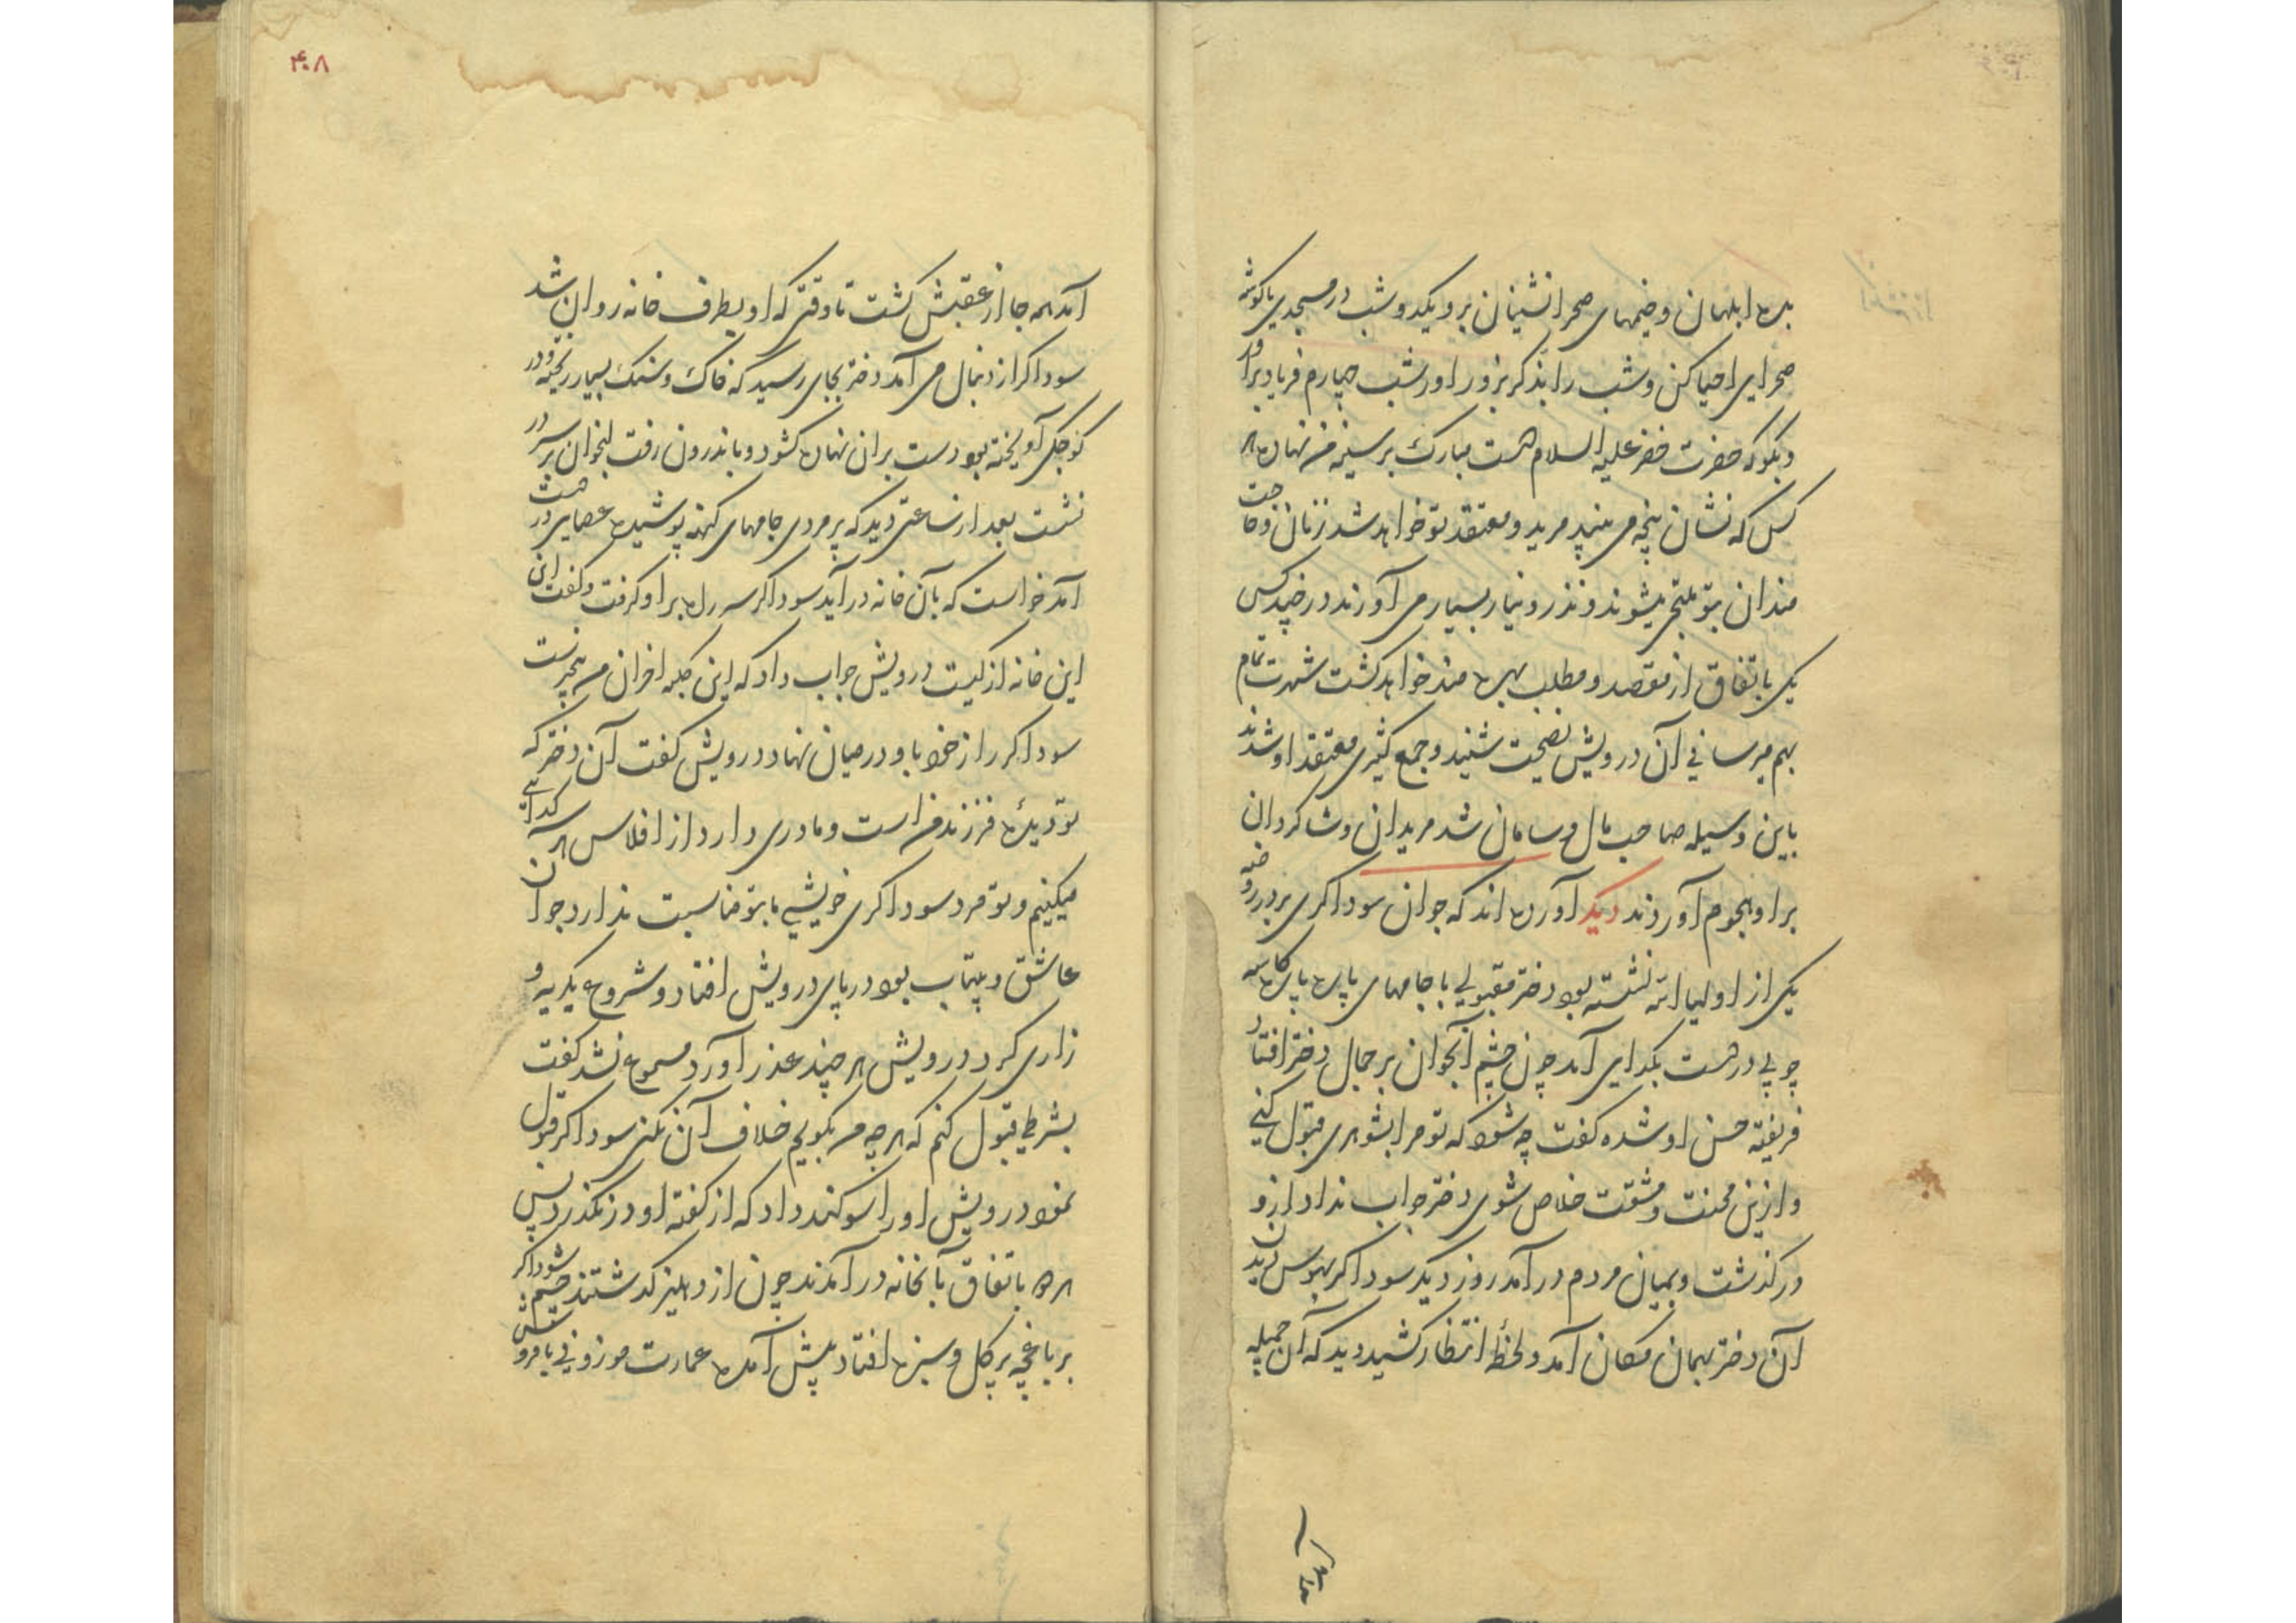 بده ابلهان و خیمهای صحرا نشینان برو یکدو شب در مسجدی یا کوشه
صحرایی احیا کن و شب را بذکر بروز اور شب چهارم فریاد برآور
و بکو که حضرت خضر علیه السلام دست مبارک بر سینه من نهاده هر
کس که نشان پنجه می بیند مرید و معتقد تو خواهد شد زنان و حاجت
مندان بتو ملتجی میشوند و نذر و نیاز بسیار می آورند و در چند کس
یکی باتفاق از مقصد و مطلب بهره مند خواهد کشت شهرت تمام
بهم میرسانی آن درویش نصیحت شنید و جمع کثیری معتقد او شدند
باین وسیله صاحب مال و سامان شد مریدان و شاکردان
بر او هجوم آوردند دیکر آورده اند که جوان سوداکری بر در روضه
یکی از اولیاء الله نشسته بود دختر مقبولی با جامهای پاره پاره کاسه
چوبی در دست بکدایی آمد چون چشم آنجوان بر جمال دختر افتاد
فریفته حسن او شده کفت چه شود که تو مرا بشوهری قبول کنی
و ازین محنت و مشقت خلاص شوی دختر جواب نداد ازو
در کذشت و بمیان مردم در آمد روز دیکر سوداکر بهوس دیدن
آن دختر بهمان مکان آمد و لحظهٔ انتظار کشید دید که آن جمیله
۴۰۸
آمد همه جا از عقبش کشت تا وقتی که او بطرف خانه روان شد
سوداکر از دنبال می آمد دختر بجای رسید که خاک و سنک بسیار ریخته و در
کوچکی آویخته بود دست بر آن نهاده کشود و باندرون رفت انجوان بر سر در
نشست بعد از ساعتی دید که پیر مردی جامهای کهنه پوشیده عصایی در دست
آمد خواست که بآن خانه در آید سوداکر سر راه بر او کرفت و کفت
این خانه از کیست درویش جواب داد که این کلبه احزان من فقیرست
سوداکر راز خود با و در میان نهاد درویش کفت آن دختر که
تو دیدهٔ فرزند من است و مادری دارد از افلاس هر سه کدائی
میکنیم و تو مرد سوداکری خویشی ما بتو مناسبت ندارد جوان
عاشق و بیتاب بود در پای درویش افتاد و شروع بکریه و
زاری کرد درویش هر چند عذر آورد مسموع نشد کفت
بشرطی قبول کنم که هر چه من بکویم خلاف آن نکنی سوداکر قبول
نمود درویش او را سوکند داد که از کفته او در نکذرد پس
هر دو باتفاق بآنخانه در آمدند چون از دهلیز کذشتند چشم سوداکر
بر باغچه پر کل و سبزه افتاد پیش آمده عمارت موزونی با فروش